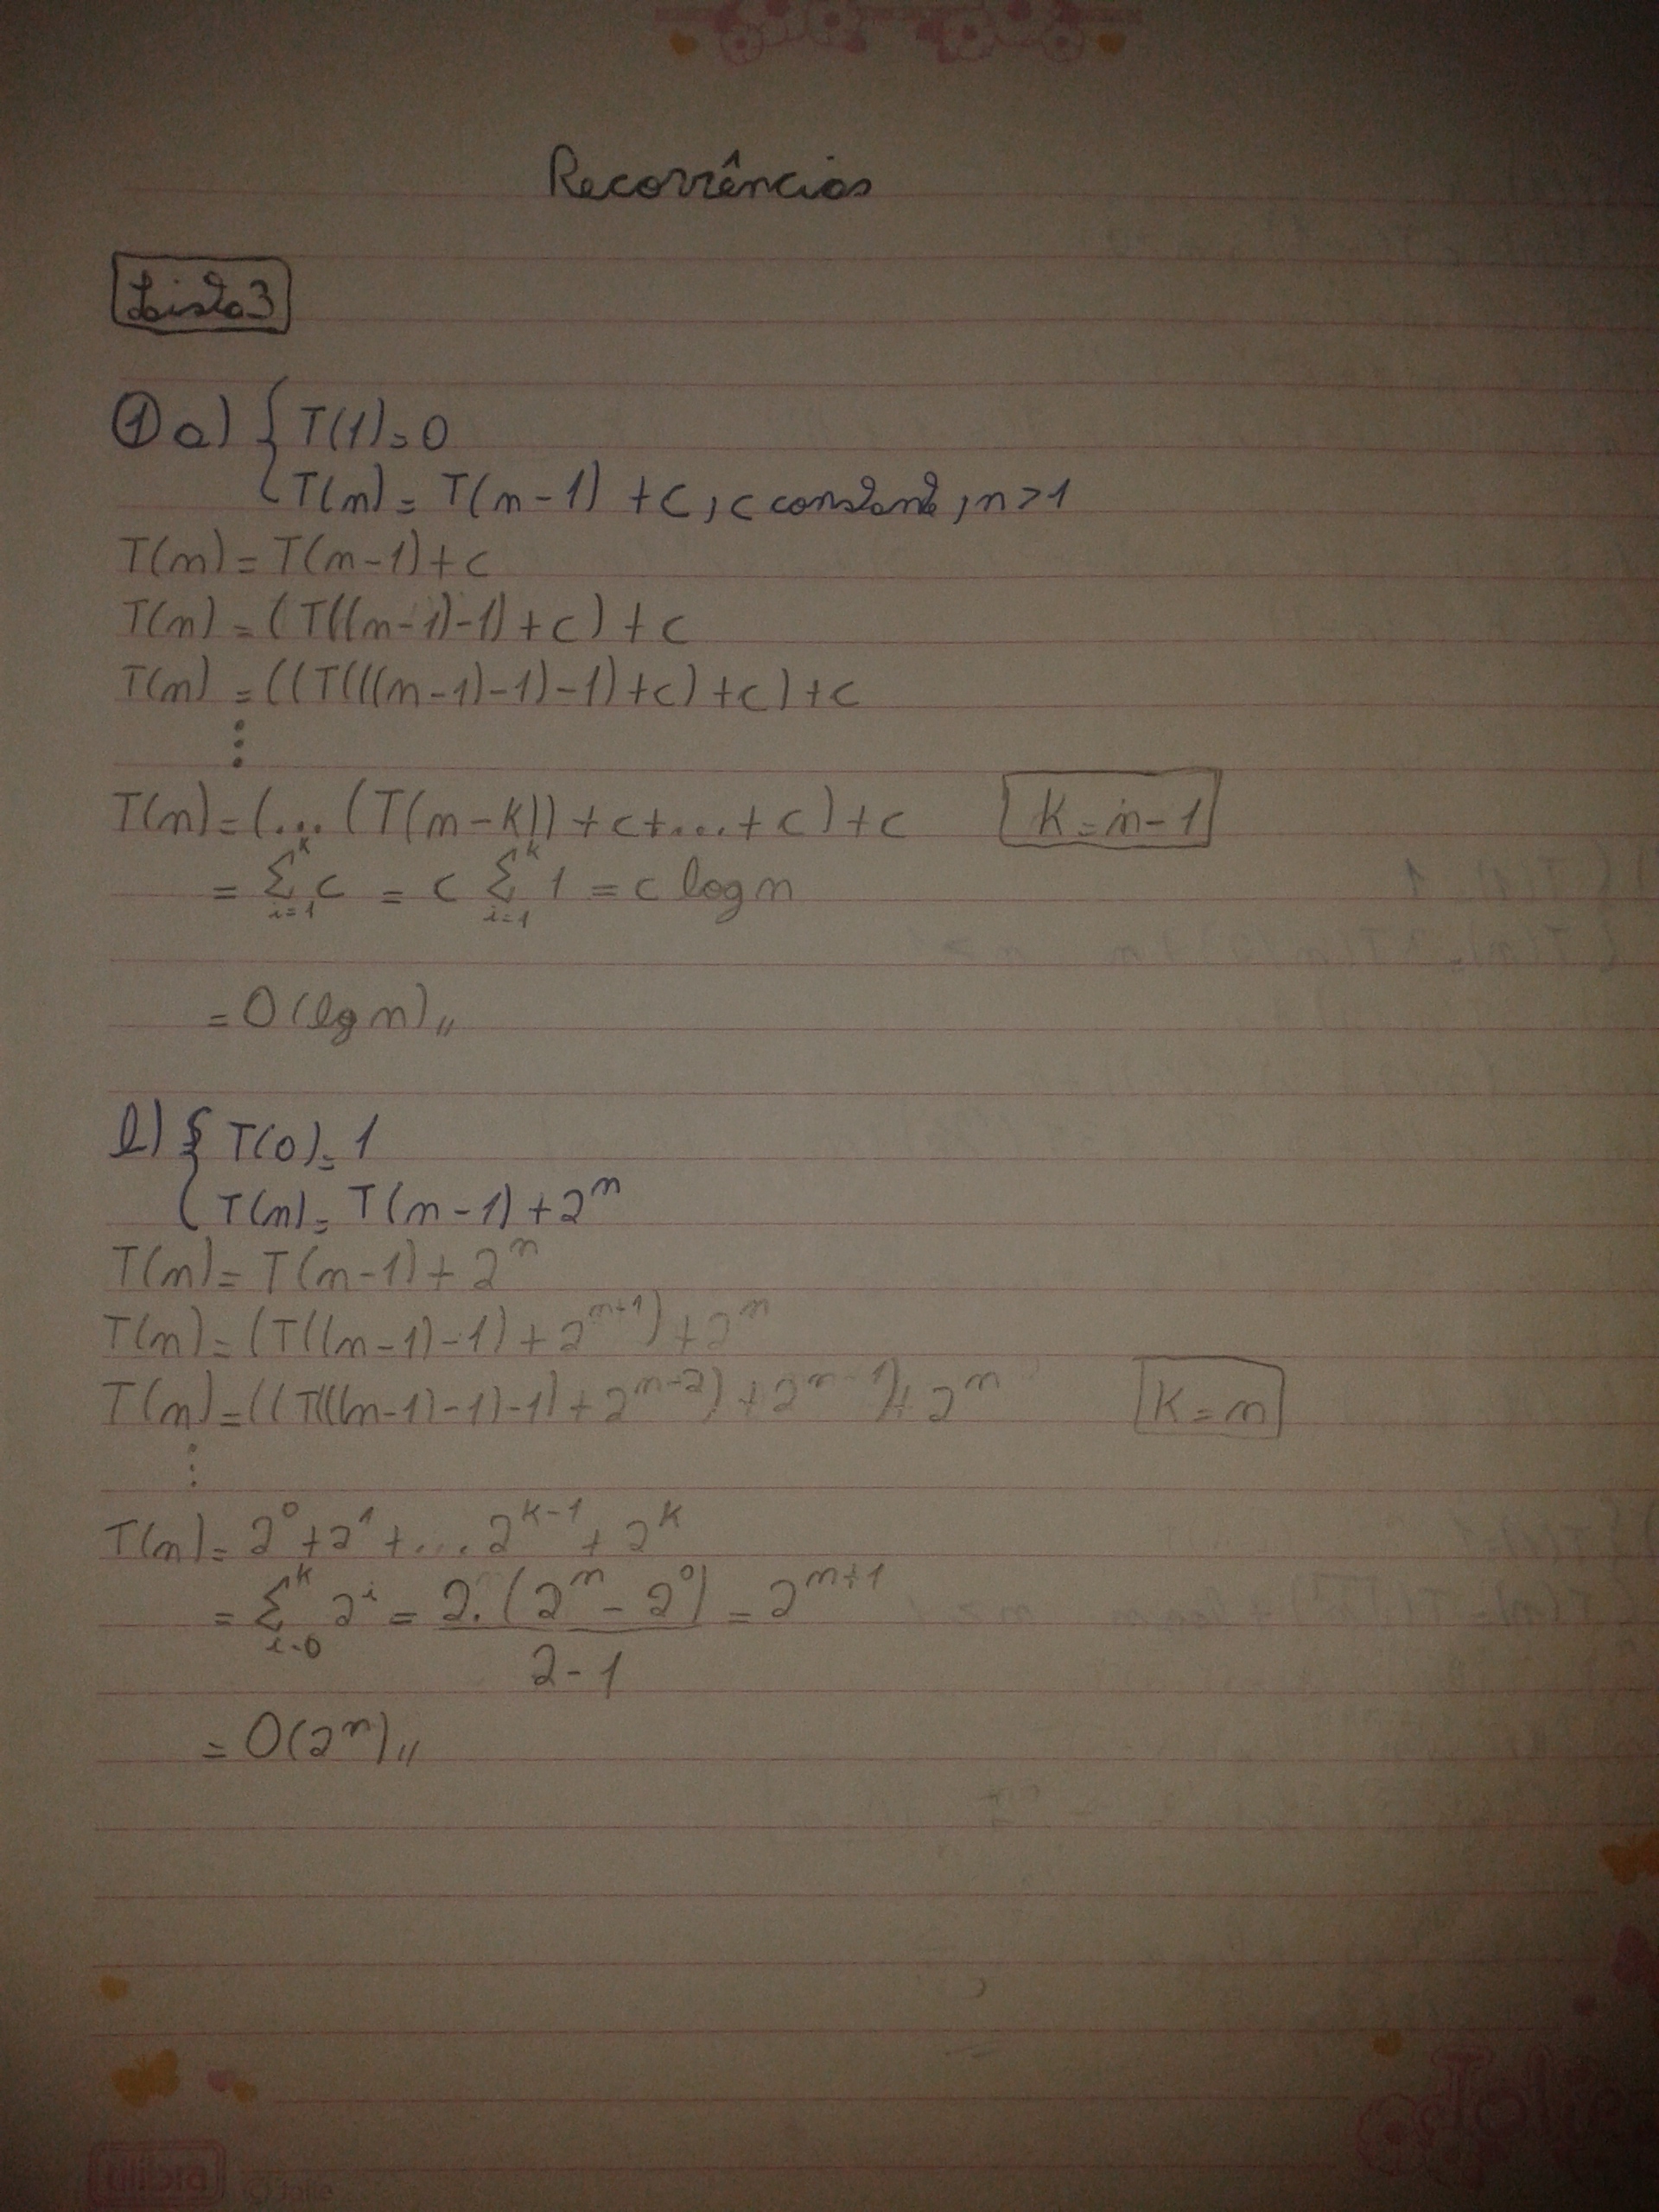 Recorrências
Lista 3
① a) { T(1) = 0
T(n) = T(n-1) + c, c constante, n > 1
T(n) = T(n-1) + c
T(n) = (T((n-1)-1) + c) + c
T(n) = ((T(((n-1)-1)-1) + c) + c) + c
⋮
T(n) = (... (T(n-k)) + c + ... + c) + c K = n-1
= Σ_{i=1}^{k} c = c Σ_{i=1}^{k} 1 = c log n
= O(lg n)//
b) { T(0) = 1
T(n) = T(n-1) + 2^n
T(n) = T(n-1) + 2^n
T(n) = (T((n-1)-1) + 2^{n+1}) + 2^n
T(n) = ((T(((n-1)-1)-1) + 2^{n-2}) + 2^{n-1}) + 2^n K = n
⋮
T(n) = 2^0 + 2^1 + ... 2^{k-1} + 2^k
= Σ_{i=0}^{k} 2^i = 2.(2^n - 2^0) / 2-1 = 2^{n+1}
= O(2^n)//
tilibra © Jolie
Jolie